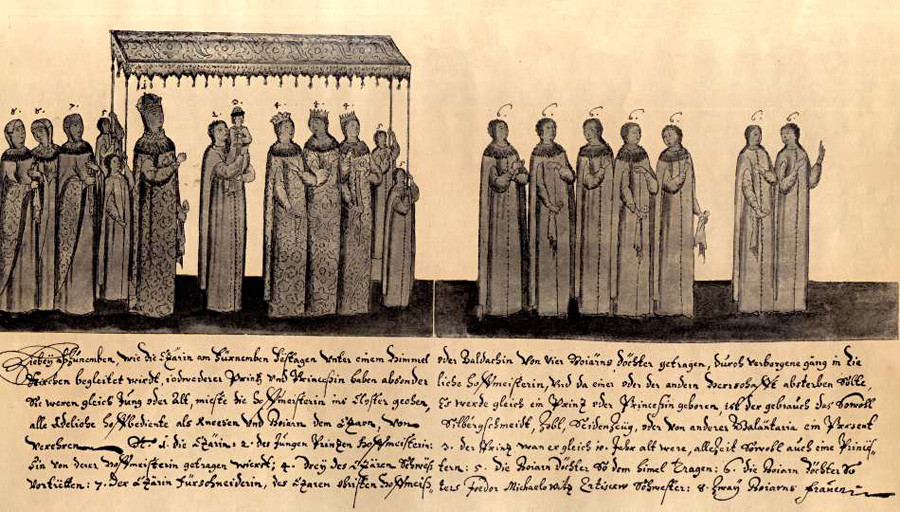 8. 8. 7. 5. 1. 2. 3. 4. 4. 4. 5. 6. 6. 6. 6. 6. 6. 6.
Hiebey abzunemben, wie die Czärin am fürnemben festagen unter einem himmel oder Baldachin von vier Boiärns döchter getragen, durch verborgene gäng in die
Kirchen begleitet wirdt, iedwederer Printz und Princessin haben absonderliche hoffmeisterin, und da einer oder der andern absterben solle,
Sie weren gleich Jung oder Alt, mieste die hoffmeisterin ins Closter gechen, Es werde gleich ein Prinz oder Princessin geboren, ist der gebrauch das Sowoll
alle Adeliche hoffbediente als Knesen und Boiarn dem Czaarn, von Silbergschmeidt, Zobl, Seidenzeug, oder von anderer ein Present
verehren 1. die Czärin: 2. des Jungen Prinzen hoffmeisterin: 3. der Prinz wan er gleich 10. Jahr alt were, allezeit Sowoll auch eine Prinzssin
von derer hoffmeisterin getragen wierdt; 4. drey des Czaren Schwöstern: 5. die Boiarn döchter So dem himel tragen: 6. die Boiarn döchter So
vortretten: 7. der Czärin fürschneiderin, des Czaren obristen hoffmeisters Fedor Michaelowitz Schwester: 8. zway Boiarns frauen